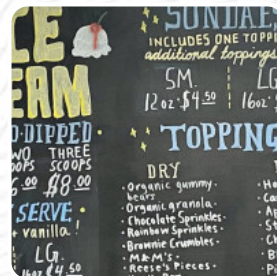 CE
EAM
D·DIPPED·
WO THREE
OOPS SCOOPS
6.00 $8.00
SERVE·
+ vanilla!
LG.
16oz $4.50
SUNDAE
INCLUDES ONE TOPPI
additional toppings
SM. LG
12oz·$4.50 16oz·
TOPPING
DRY
·Organic gummy
bears
·Organic granola·
·Chocolate Sprinkles·
·Rainbow Sprinkles·
·Brownie Crumbles·
·M&M's·
·Reese's Pieces·